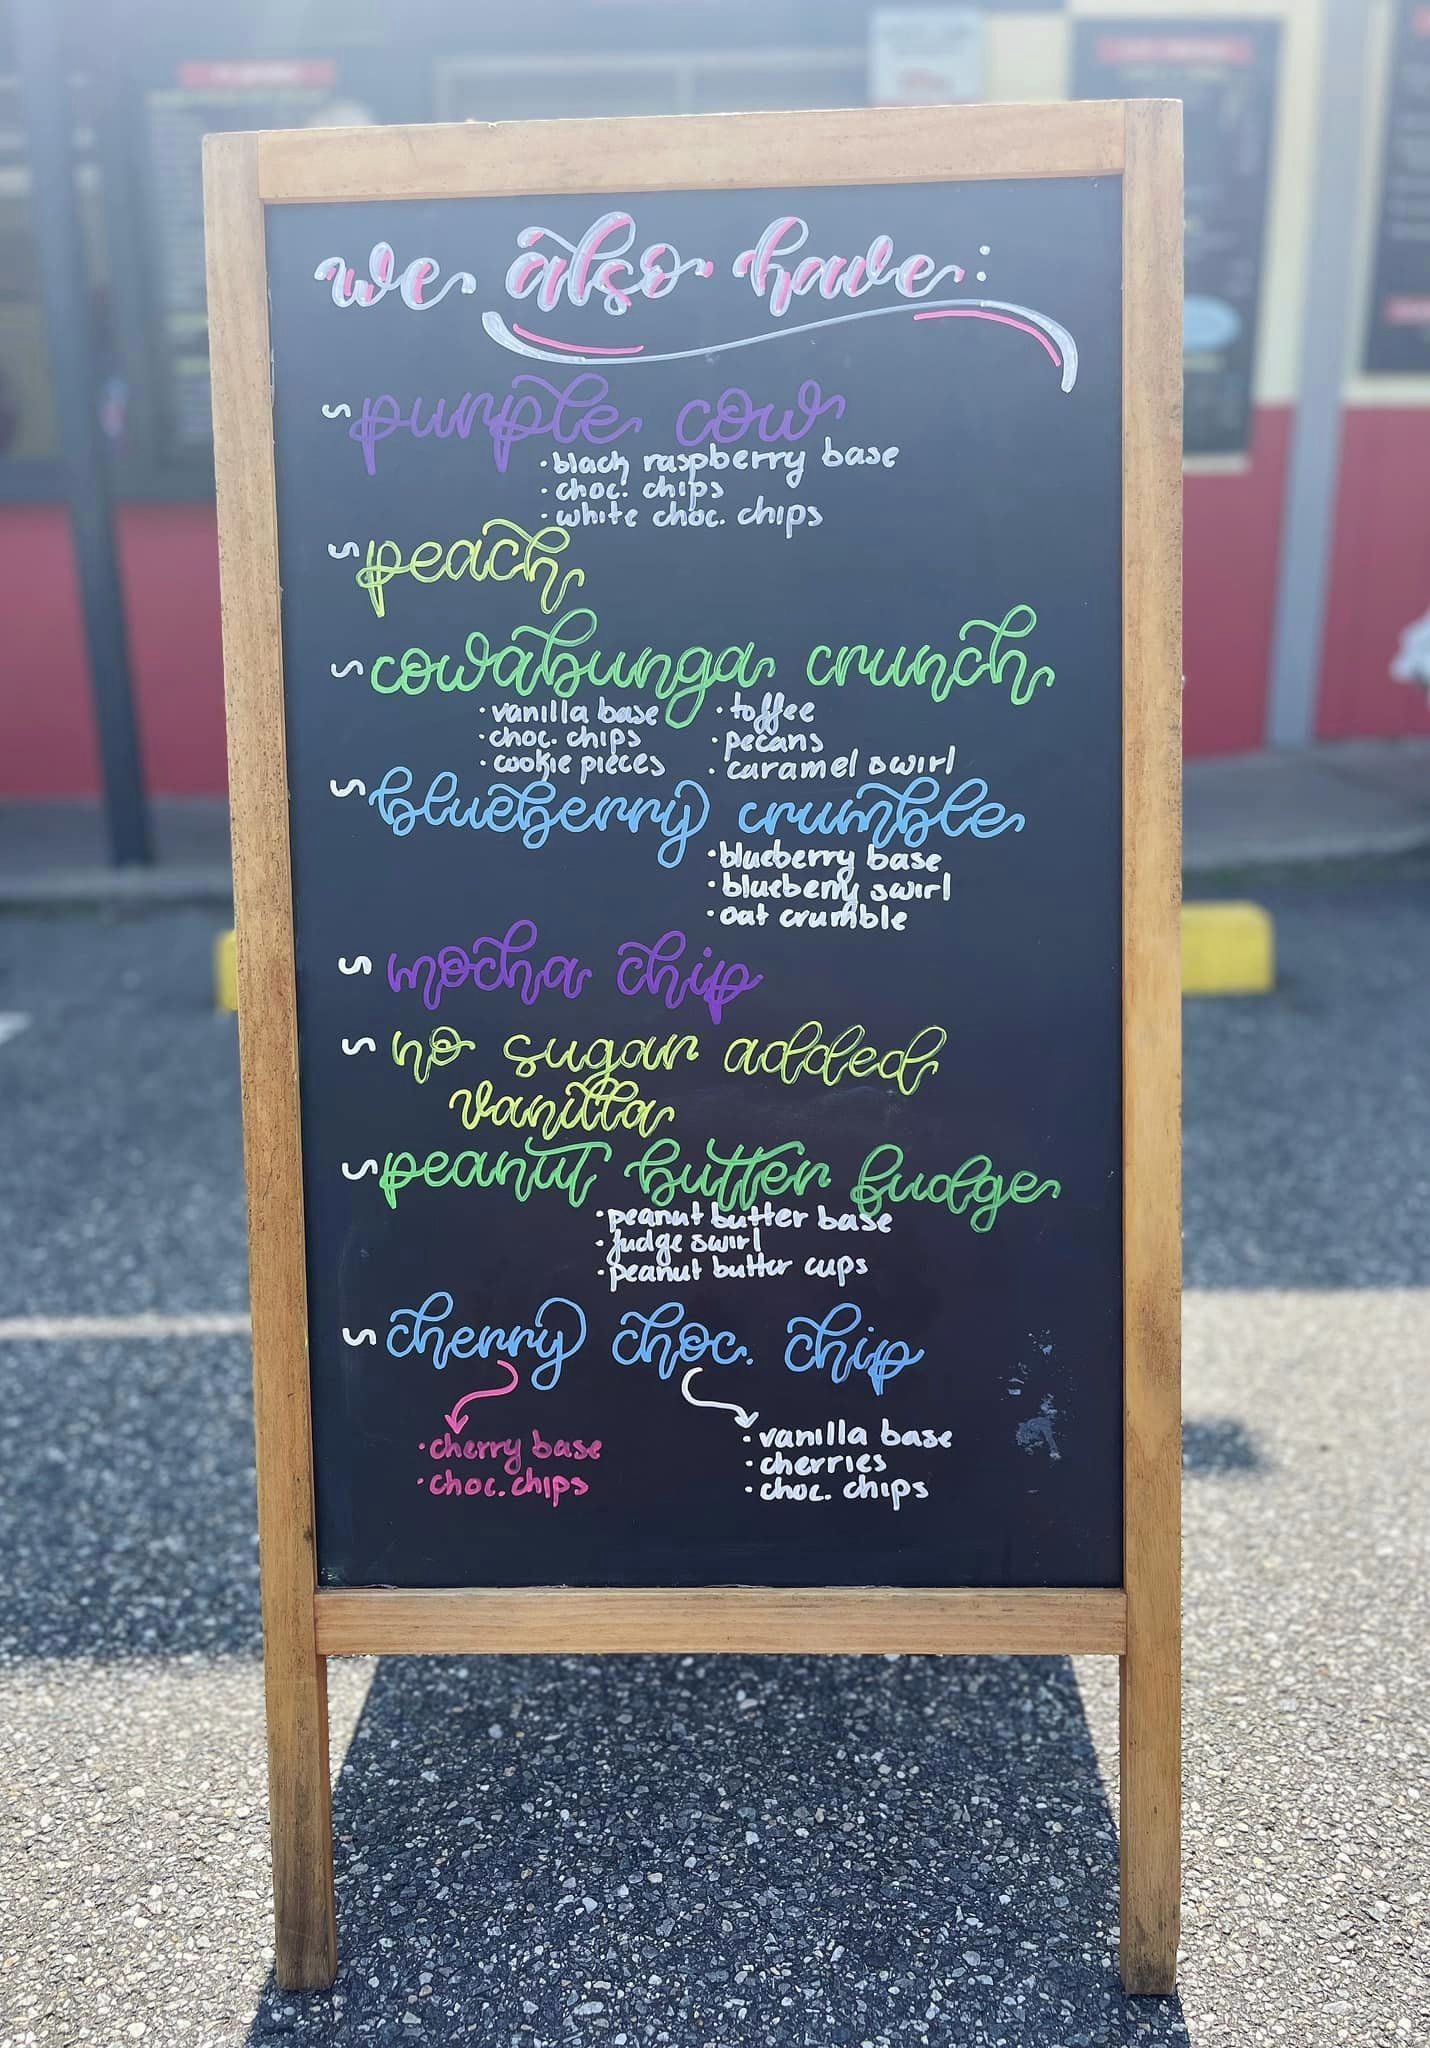 we also have:
purple cow
· black raspberry base
· choc. chips
· white choc. chips
peach
cowabunga crunch
· vanilla base · toffee
· choc. chips · pecans
· cookie pieces · caramel swirl
blueberry crumble
· blueberry base
· blueberry swirl
· oat crumble
mocha chip
no sugar added
vanilla
peanut butter fudge
· peanut butter base
· fudge swirl
· peanut butter cups
cherry choc. chip
· cherry base
· choc. chips
· vanilla base
· cherries
· choc. chips